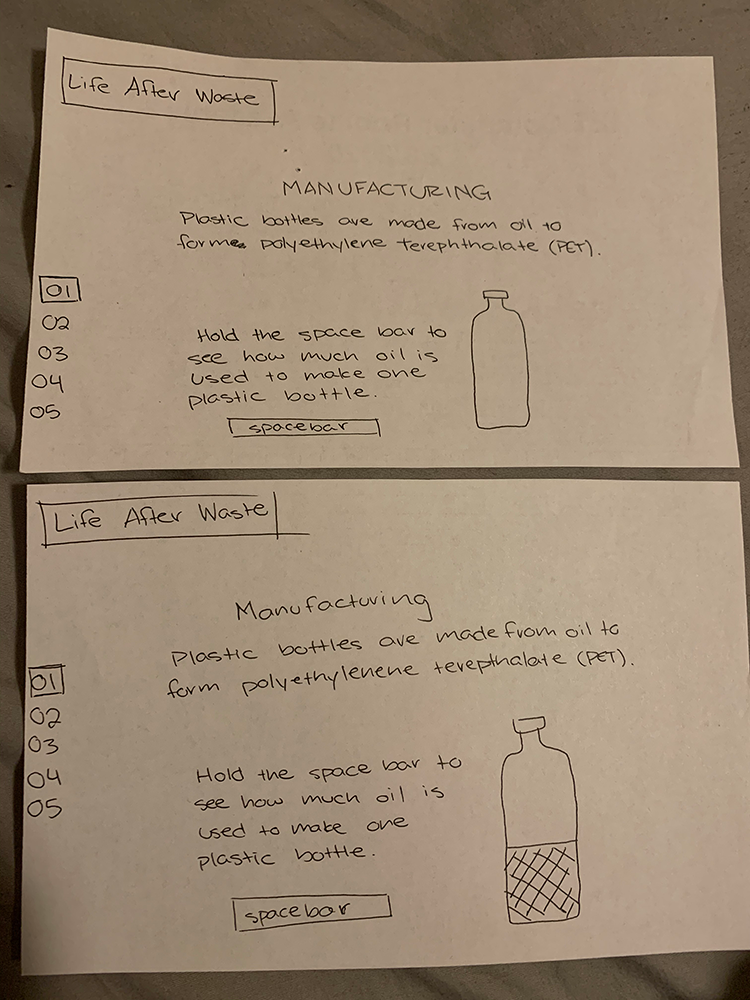 Life After Waste
MANUFACTURING
Plastic bottles are made from oil to
forme polyethylene terephthalate (PET).
01
02
03
04
05
Hold the space bar to
see how much oil is
used to make one
plastic bottle.
spacebar
Life After Waste
Manufacturing
Plastic bottles are made from oil to
form polyethylenene terepthalate (PET).
01
02
03
04
05
Hold the space bar to
see how much oil is
used to make one
plastic bottle.
spacebar